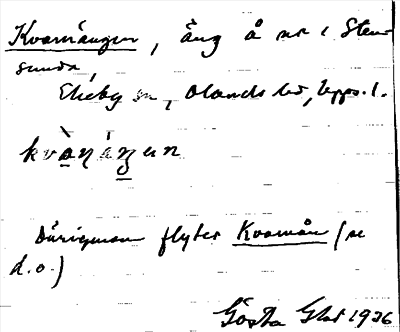 Kvarnängen, äng å nr 1 Sten-
sunda,
Ekeby sn, Olands hd, Upps. l.
kvàɳáŋen
Därigenom flyter Kvarnån (se
d. o.)
Gösta 1926